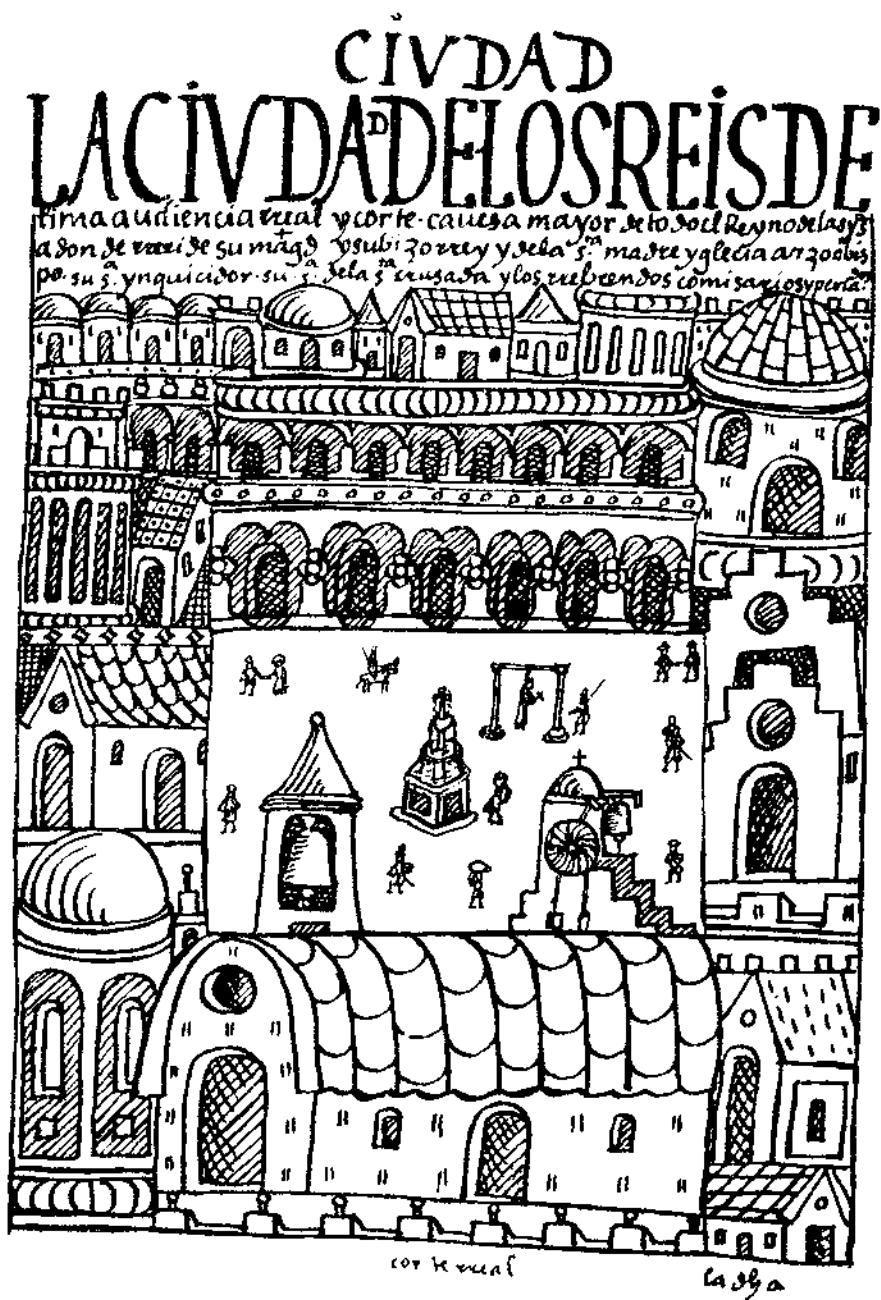 CIVDAD
LA CIVDAD DE LOS REIS DE
lima audiencia rreal y corte · cauesa mayor de todo el Reyno de las ys
adonde rreside su mag.d y su bizorrey y de la s.ta madre yglecia arzoobis
po · su s.a ynquicidor · su s.a de la s.ta crusada y los rrebrendos comisarios y perla
corte rreal